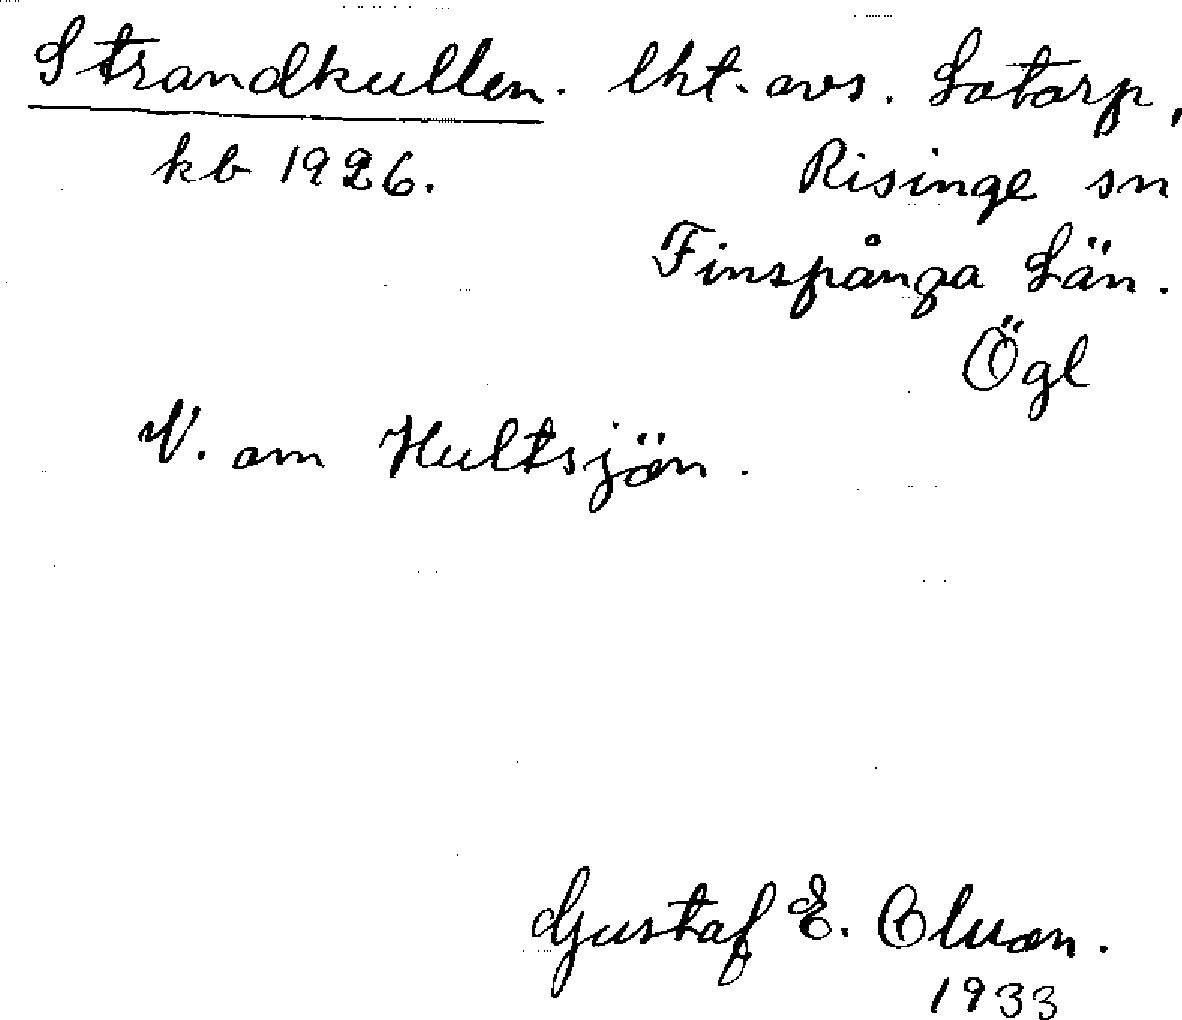 Strandkullen. lht. avs. Latorp,
kb 1926. Risinge sn
Finspånga Län.
Ögl
V. om Hultsjön.
Gustaf E.
1933